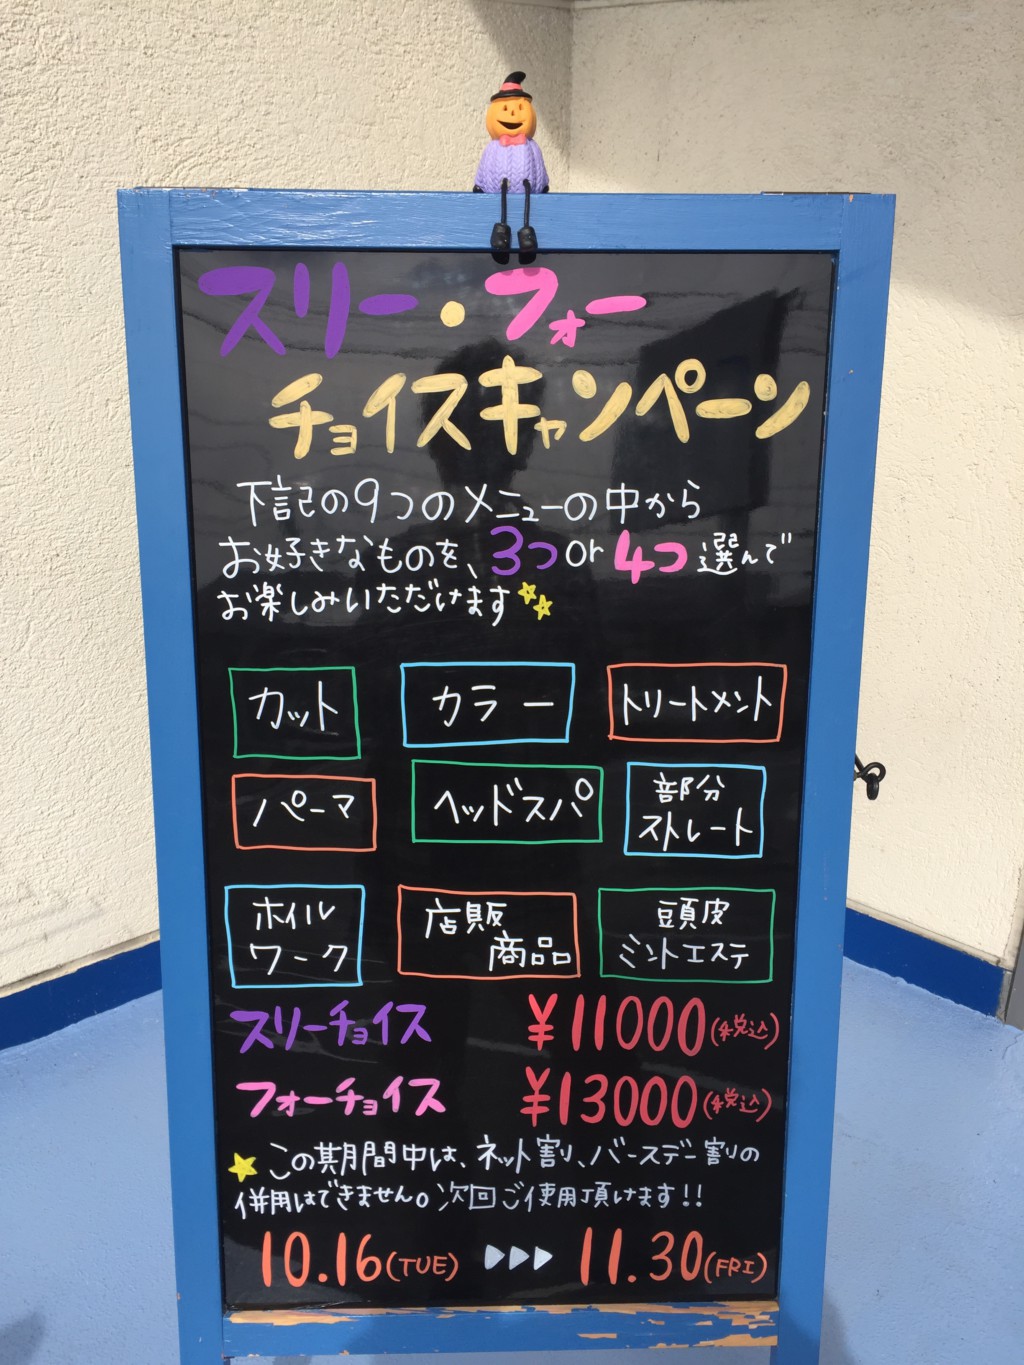 スリー・フォー
チョイスキャンペーン
下記の9つのメニューの中から
お好きなものを、3つor4つ選んで
お楽しみいただけます
カット
カラー
トリートメント
パーマ
ヘッドスパ
部分
ストレート
ホイル
ワーク
店販
商品
頭皮
ミントエステ
スリーチョイス ¥11000(税込)
フォーチョイス ¥13000(税込)
この期間中は、ネット割り、バースデー割りの
併用はできません。次回ご使用頂けます!!
10.16(TUE) ▷▷▷ 11.30(FRI)